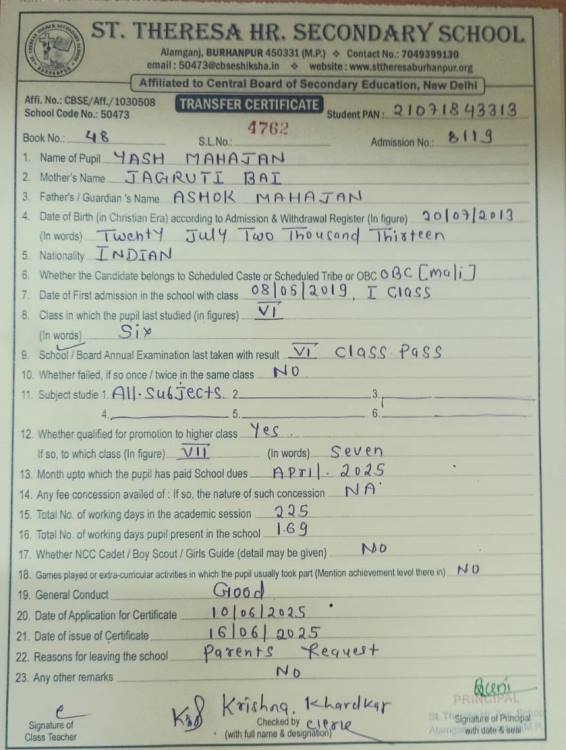 ST. THERESA HR. SECONDARY SCHOOL
Alamganj, BURHANPUR 450331 (M.P.) ❖ Contact No.: 7049399130
email : 50473@cbseshiksha.in ❖ website : www.sttheresaburhanpur.org
Affiliated to Central Board of Secondary Education, New Delhi
Affi. No.: CBSE/Aff./1030508
School Code No.: 50473
TRANSFER CERTIFICATE
Student PAN : 21071843313
Book No.: 48 S.L.No.: 4762 Admission No.: 8119
1. Name of Pupil YASH MAHAJAN
2. Mother's Name JAGRUTI BAI
3. Father's / Guardian 's Name ASHOK MAHAJAN
4. Date of Birth (in Christian Era) according to Admission & Withdrawal Register (In figure) 20/07/2013
(In words) Twenty July Two Thousand Thirteen
5. Nationality INDIAN
6. Whether the Candidate belongs to Scheduled Caste or Scheduled Tribe or OBC OBC [mali]
7. Date of First admission in the school with class 08/05/2019, I Class
8. Class in which the pupil last studied (in figures) VI
(In words) Six
9. School / Board Annual Examination last taken with result VI Class Pass
10. Whether failed, if so once / twice in the same class NO
11. Subject studie 1. All-Subjects 2. 3.
4. 5. 6.
12. Whether qualified for promotion to higher class Yes
If so, to which class (In figure) VII (In words) Seven
13. Month upto which the pupil has paid School dues April. 2025
14. Any fee concession availed of : If so, the nature of such concession NA
15. Total No. of working days in the academic session 225
16. Total No. of working days pupil present in the school 169
17. Whether NCC Cadet / Boy Scout / Girls Guide (detail may be given) NO
18. Games played or extra-curricular activities in which the pupil usually took part (Mention achievement level there in) NO
19. General Conduct Good
20. Date of Application for Certificate 10/06/2025
21. Date of issue of Certificate 16/06/2025
22. Reasons for leaving the school Parents Request
23. Any other remarks No
Krishna. Khardkar
PRINCIPAL
Signature of
Class Teacher
Checked by Clerk
(with full name & designation)
Signature of Principal
with date & sele